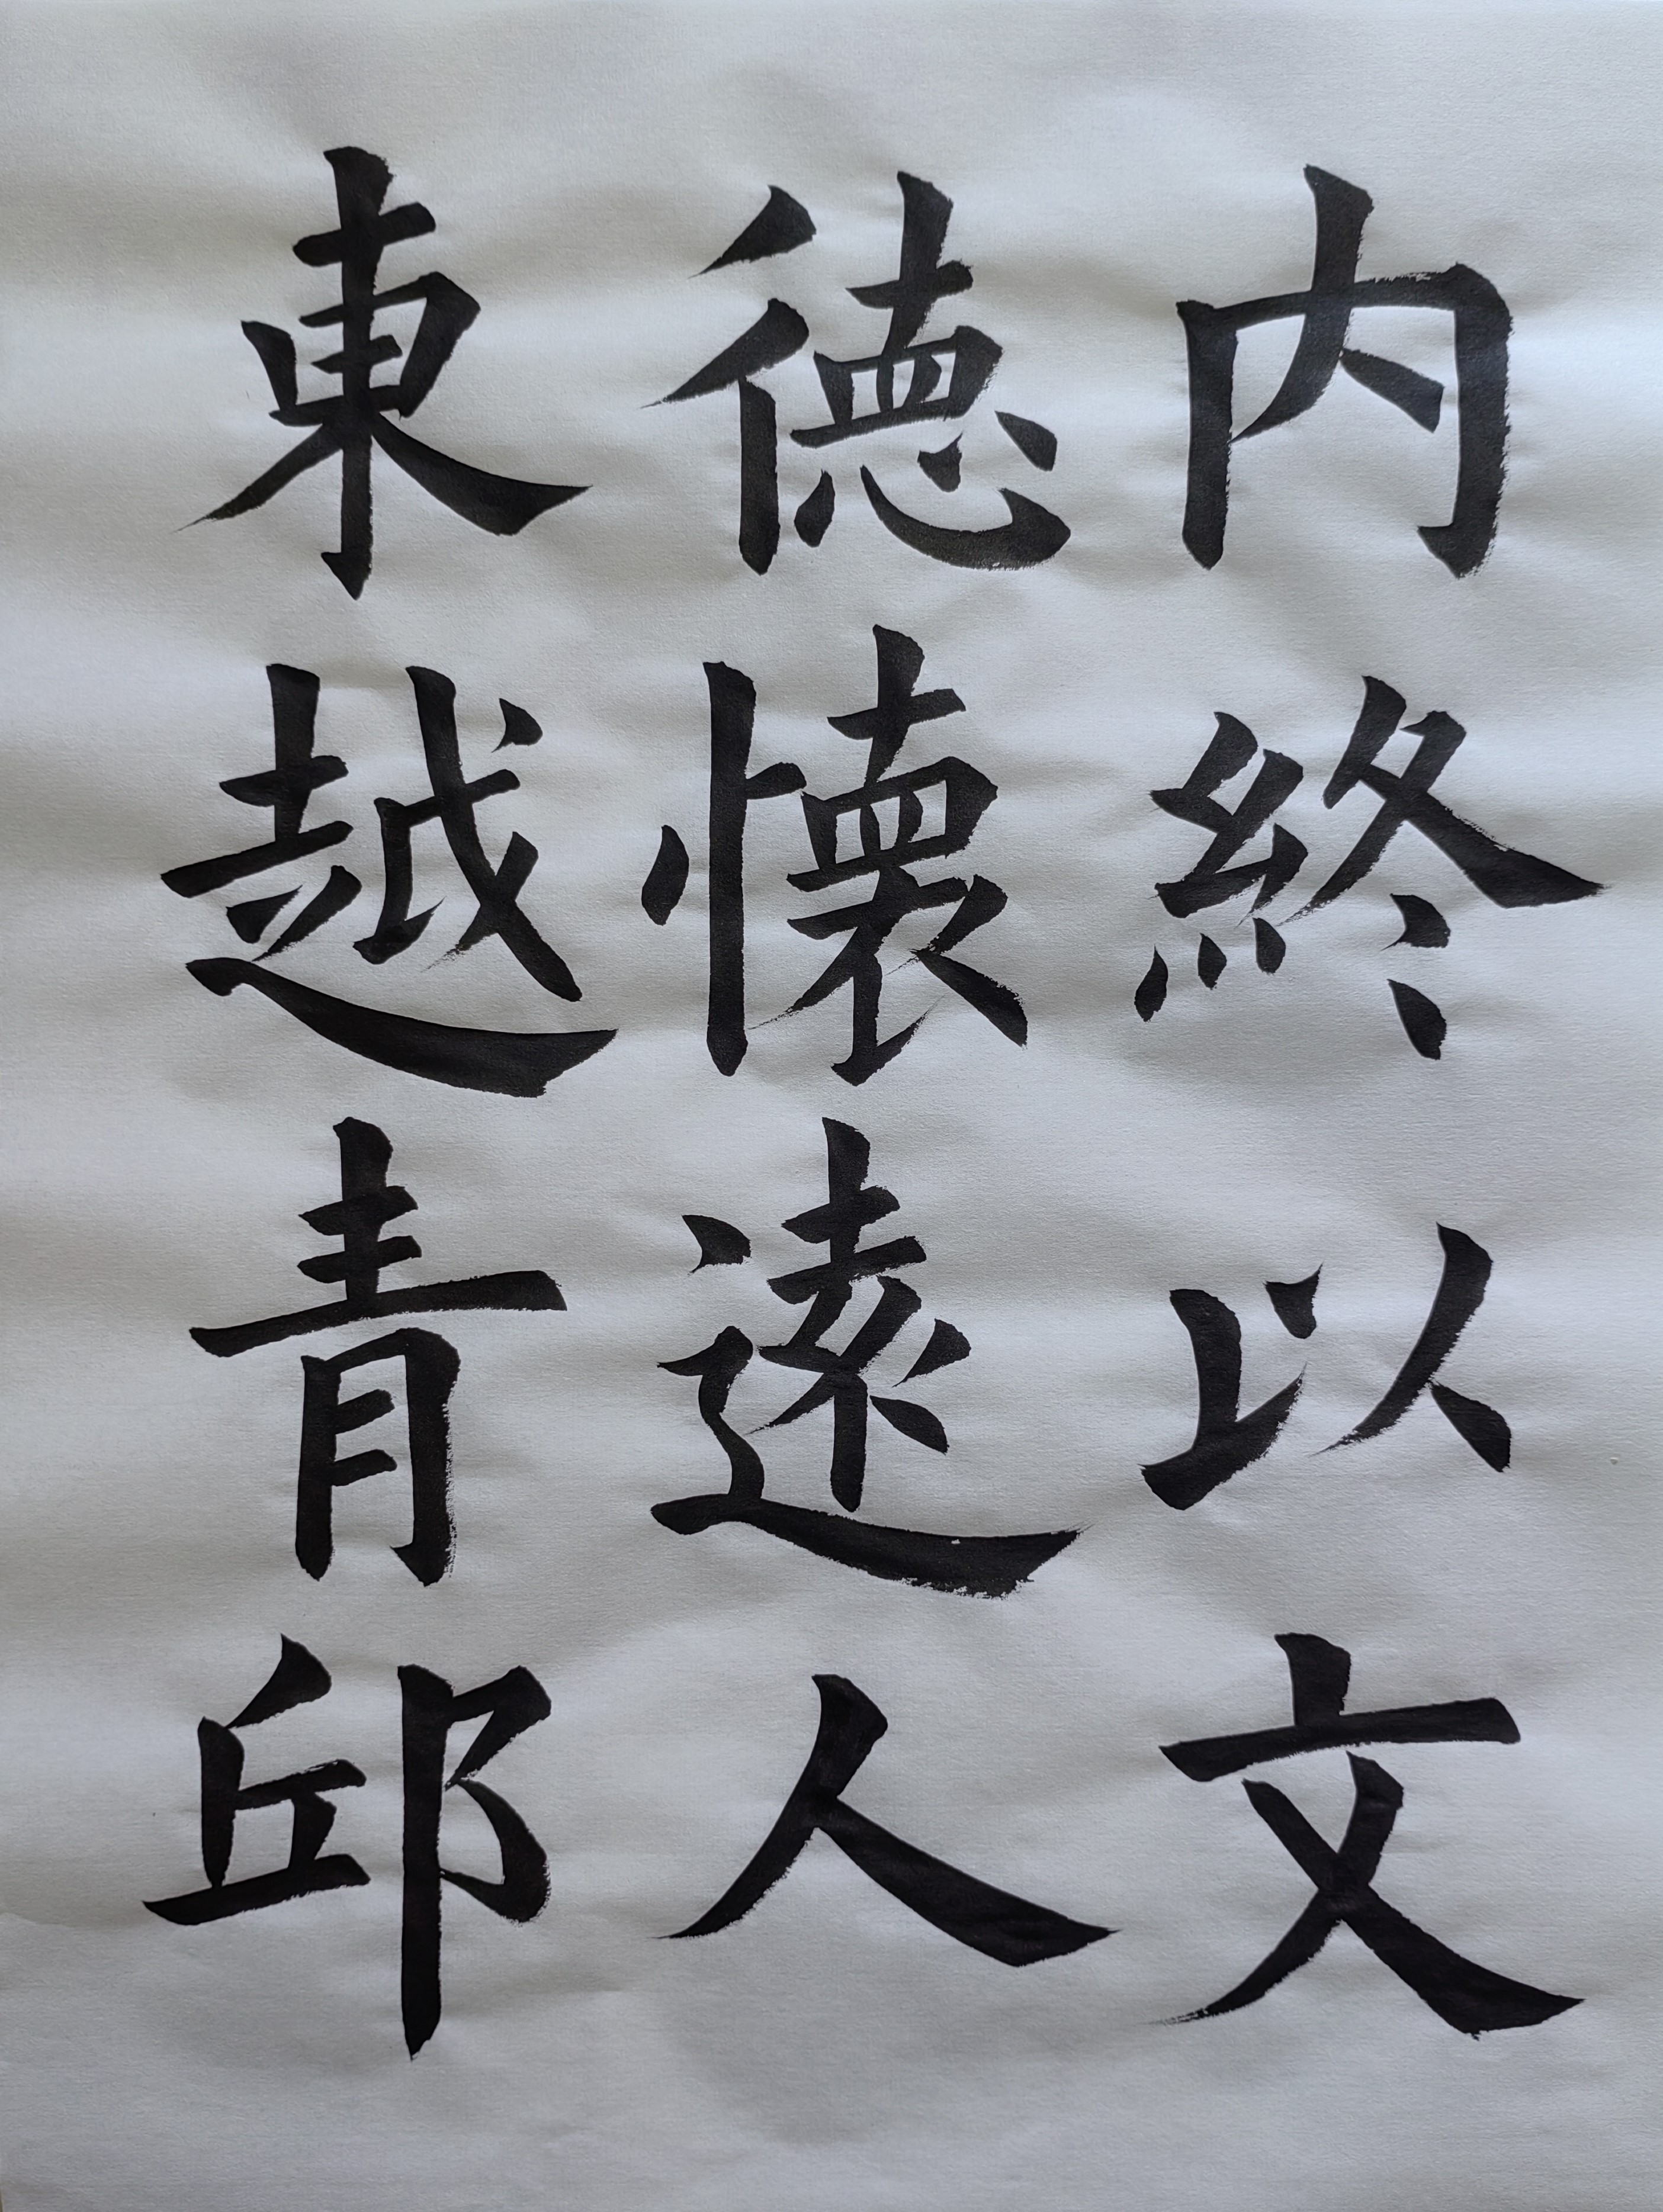 内終以文
德懷遠人
東越青邱